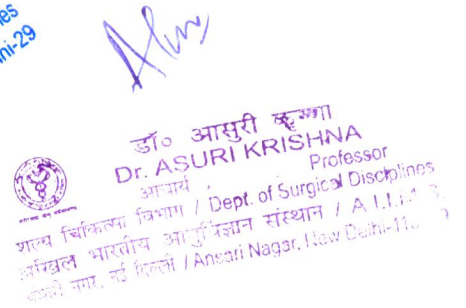 डॉ० आसुरी कृष्णा
Dr. ASURI KRISHNA
आचार्य / Professor
शल्य चिकित्सा विभाग / Dept. of Surgical Disciplines
अखिल भारतीय आयुर्विज्ञान संस्थान / A.I.I.M.S.
नगर, नई दिल्ली / Ansari Nagar, New Delhi-11